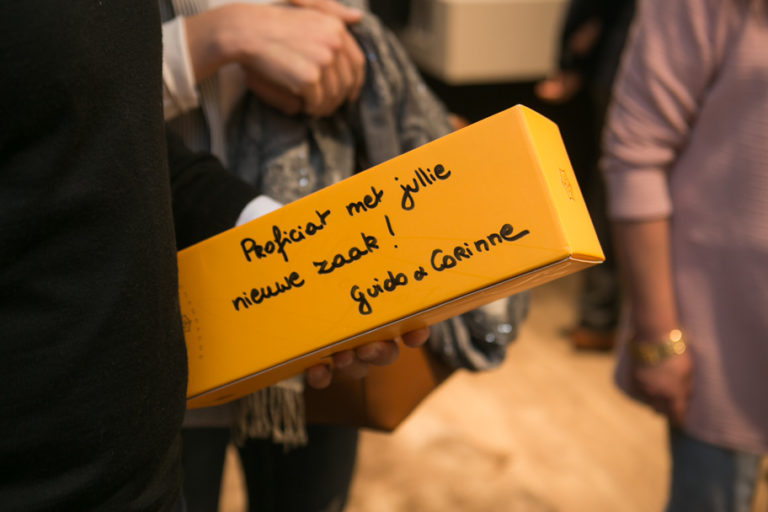 Proficiat met jullie
nieuwe zaak!
Guido & Corinne